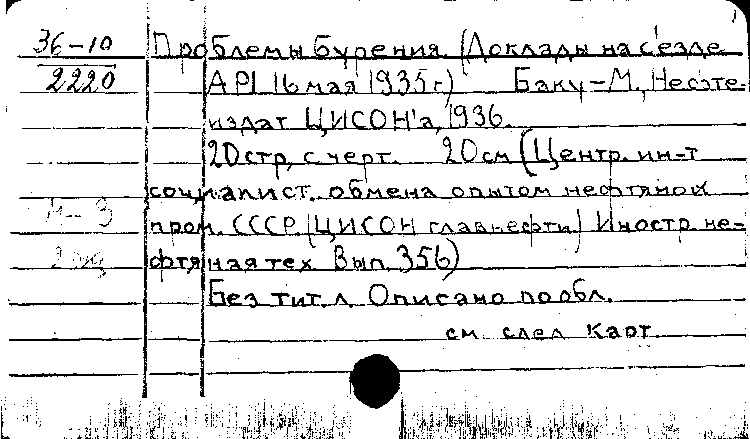 36-10 Проблемы бурения (Доклады на съезде
2220 API 16 мая 1935 г.) Баку-М., Нефте-
издат ЦИСОН'а, 1936.
20 стр. с черт. 20 см (Центр. ин-т
социалист. обмена опытом нефтяной
пром. СССР (ЦИСОН главнефти) Иностр. не-
фтяная тех. Вып. 356)
Без тит. л. Описано по обл.
см. след карт.